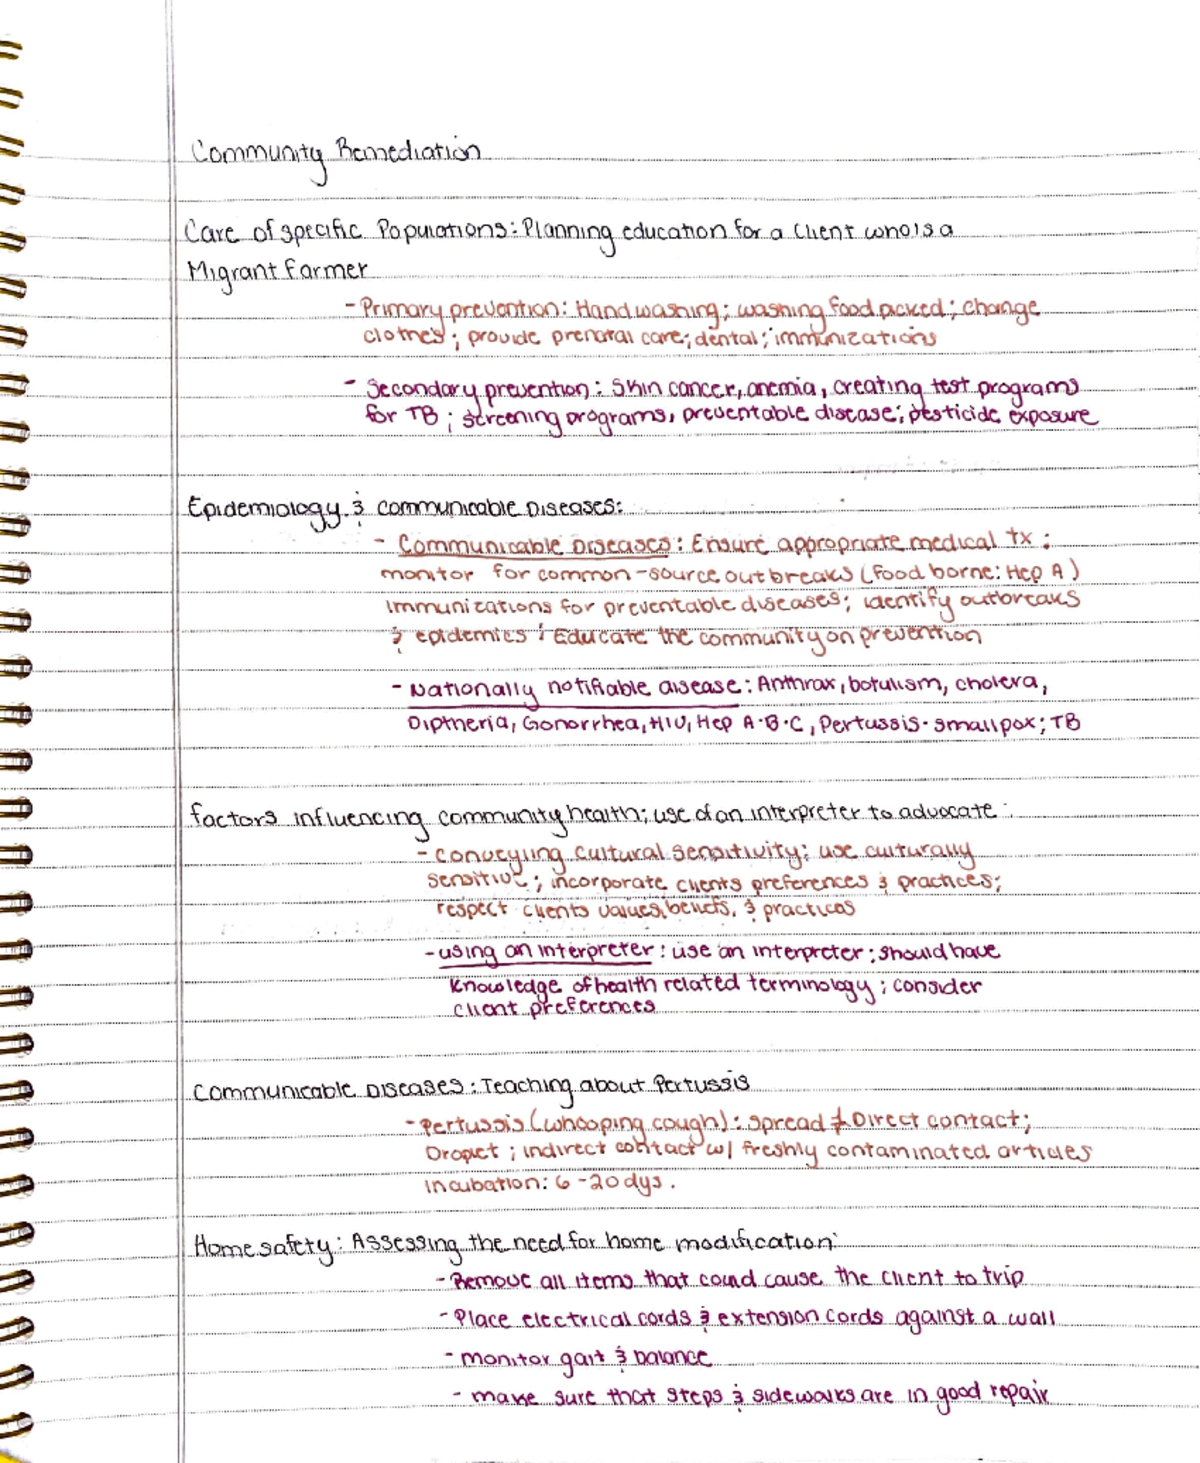 Community Remediation
Care of specific Populations: Planning education for a client who is a
Migrant farmer
- Primary prevention: Hand washing; washing food picked; change
clothes; provide prenatal care; dental; immunizations
- Secondary prevention: Skin cancer, anemia, creating test programs
for TB; screening programs, preventable disease; pesticide exposure
Epidemiology & communicable Diseases:
- Communicable Diseases: Ensure appropriate medical tx;
monitor for common-source outbreaks (food borne: Hep A)
immunizations for preventable diseases; identify outbreaks
& epidemics; Educate the community on prevention
- Nationally notifiable disease: Anthrax, botulism, cholera,
Diptheria, Gonorrhea, HIV, Hep A·B·C, Pertussis·smallpox; TB
factors influencing community health; use of an interpreter to advocate:
- Conveying Cultural Sensitivity: use culturally
sensitive; incorporate clients preferences & practices;
respect clients values, beliefs, & practices
- using an interpreter: use an interpreter; should have
knowledge of health related terminology; consider
client preferences
Communicable Diseases: Teaching about Pertussis
- Pertussis (whooping cough): spread Direct contact;
Droplet; indirect contact w/ freshly contaminated articles
incubation: 6-20 dys.
Home safety: Assessing the need for home modification:
- Remove all items that could cause the client to trip
- Place electrical cords & extension cords against a wall
- monitor gait & balance
- make sure that steps & sidewalks are in good repair